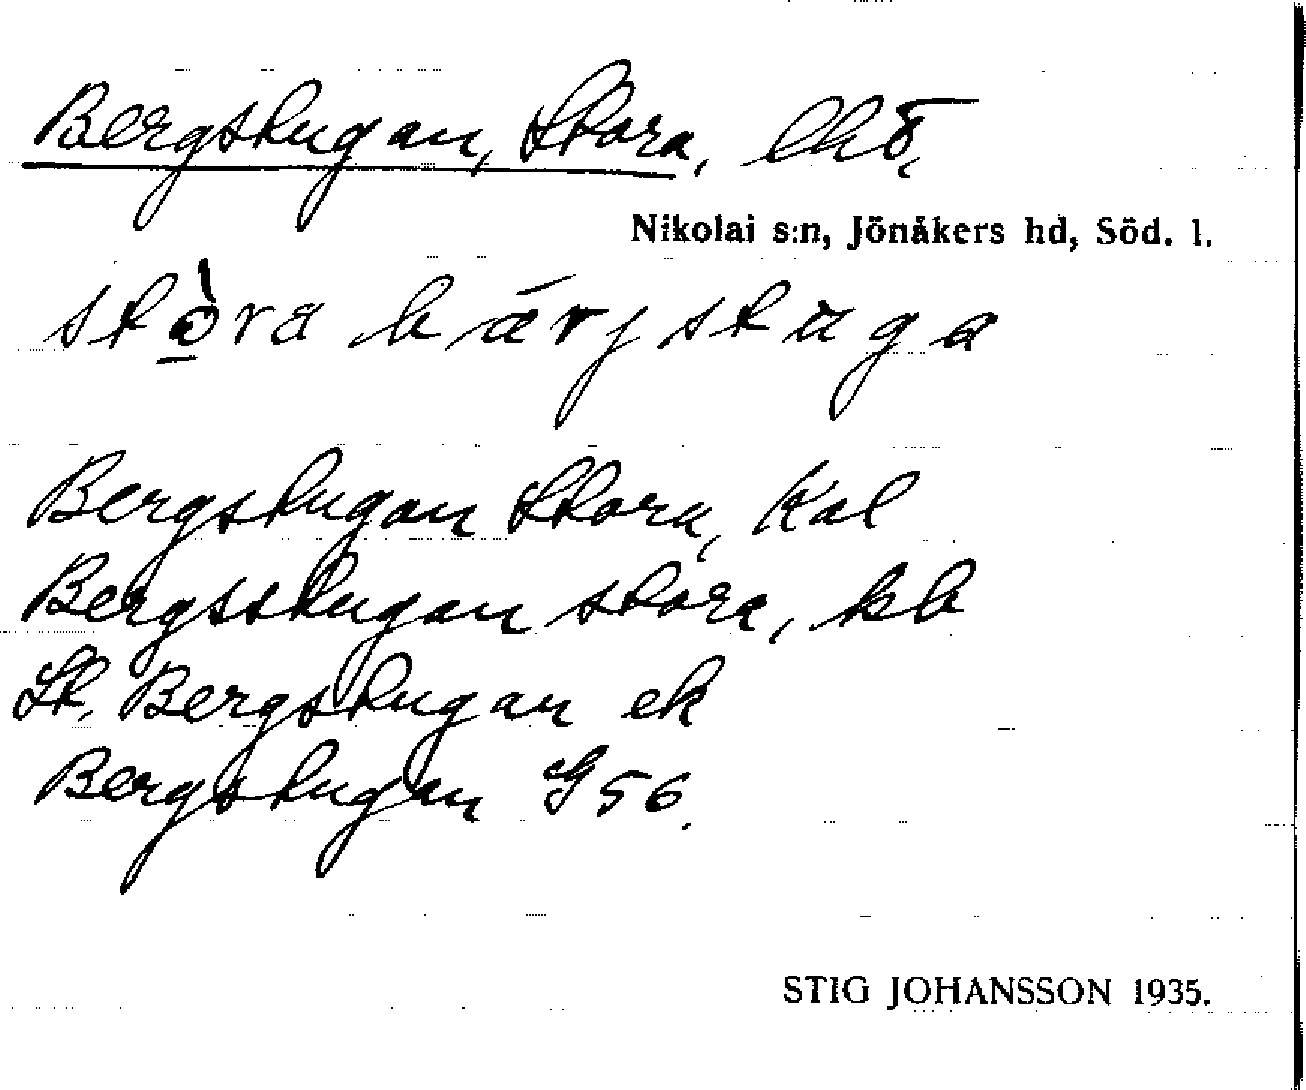 Bergstugan, Stora,
Nikolai s:n, Jönåkers hd, Söd. l.
stòra bärjstuga
Bergstugan Stora, Kal
Bergsstugan stora, kb
St. Bergstugan ek
Bergstugan G 56.
STIG JOHANSSON 1935.